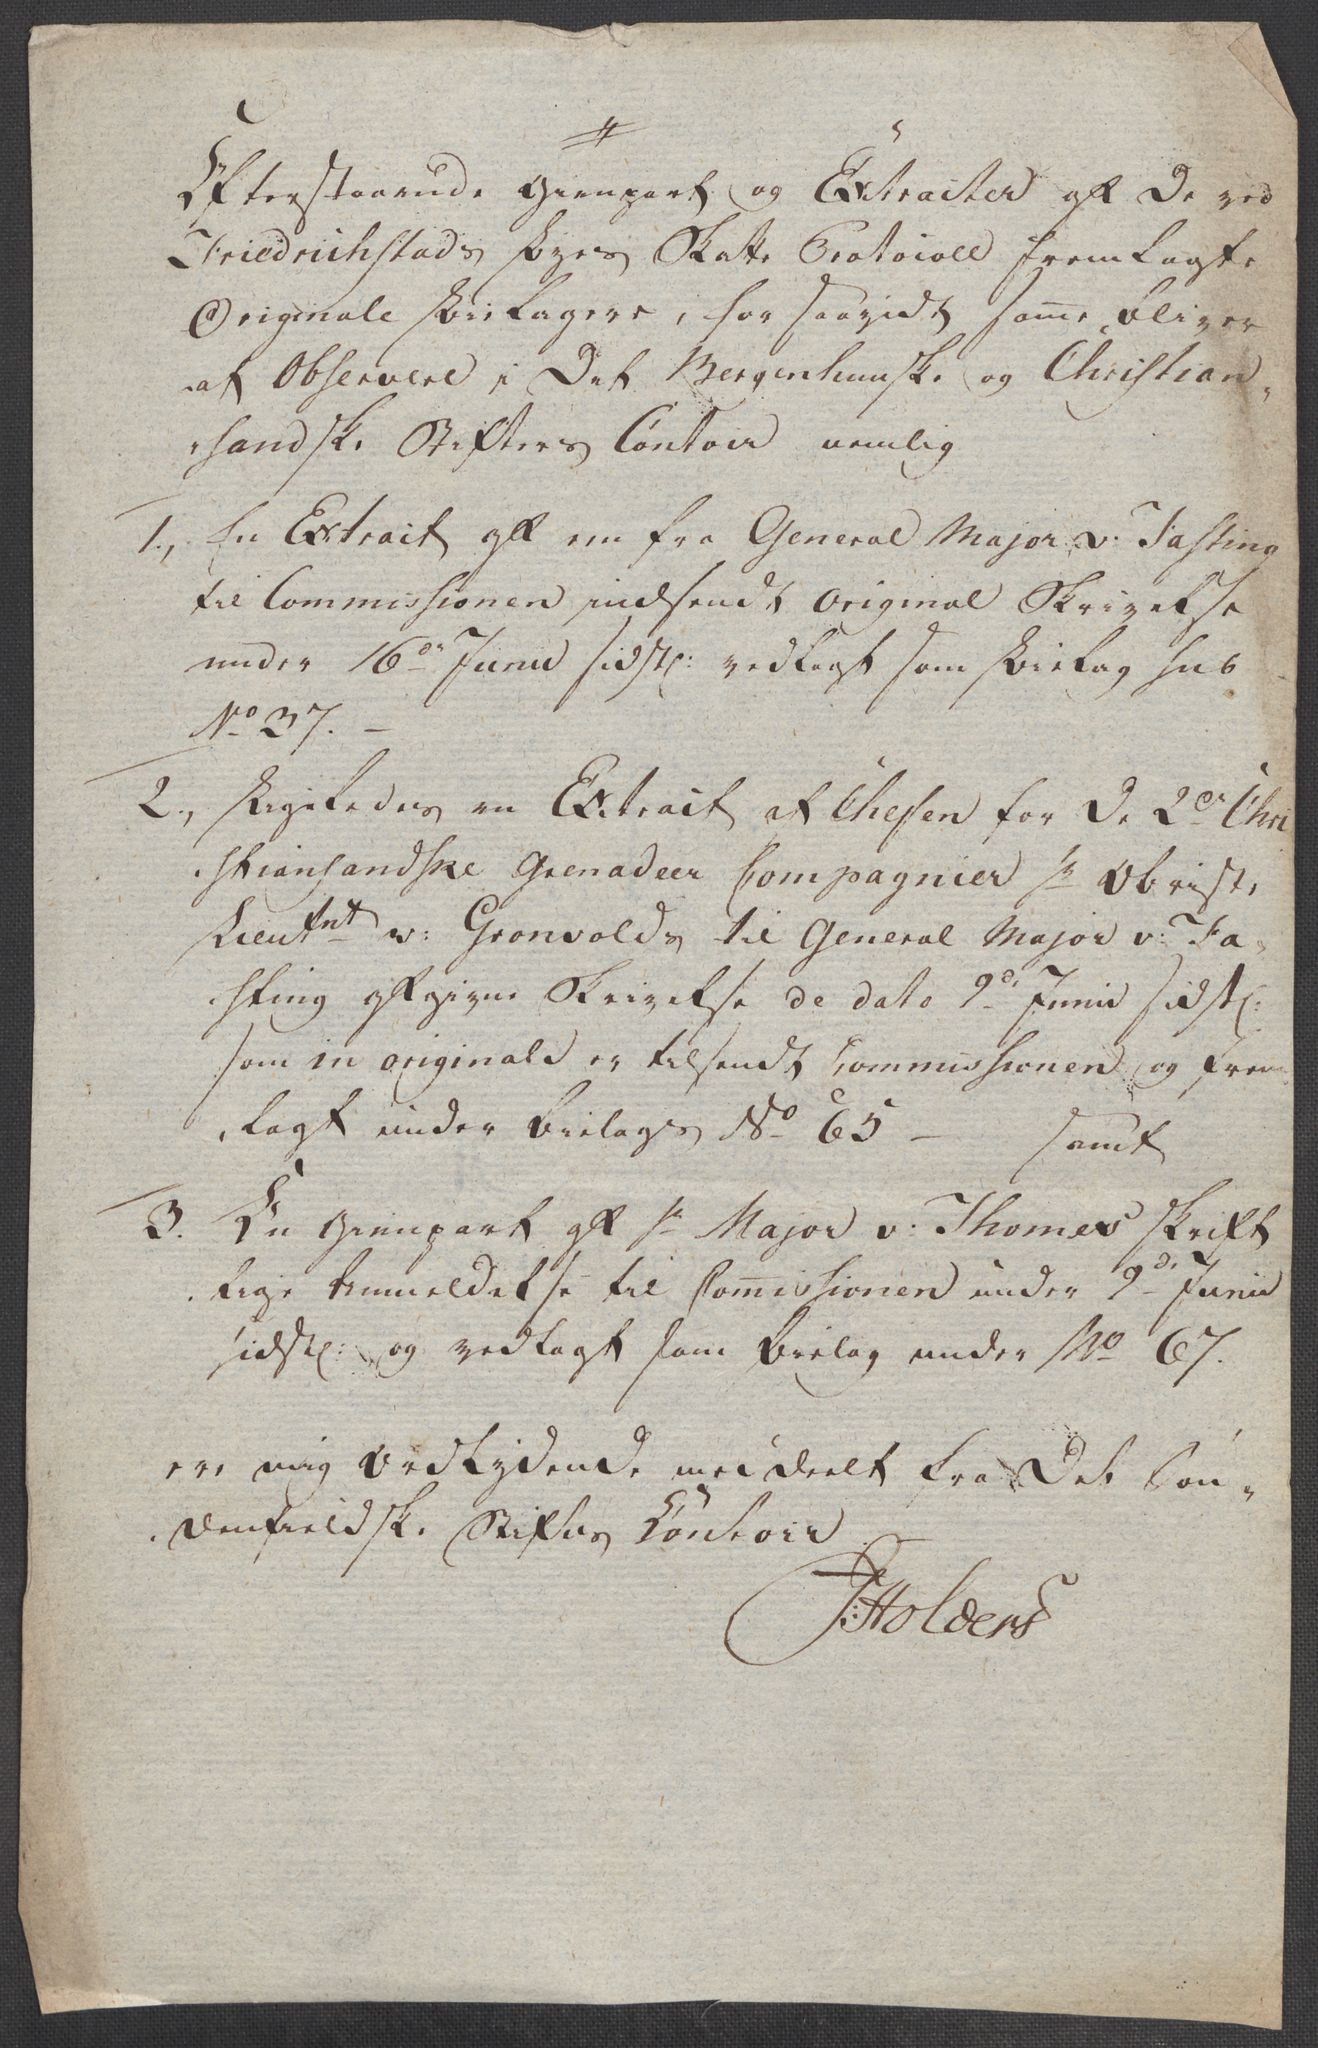 Efterstaaende Gienpart og Extracter af De ved
Friedrichstads Byes Skatte Protocoll fremlagte
Originale Bielager, for saavidt samme bliver
at Observere i Det Bergenhuuske og Christian-
sandske Stifters Contoir nemlig
1., En Extract af en fra General Major v: Fasting
til Commissionen indsendt original Skrivelse
under 16de Junii sidstl: vedlagt som Bielag sub
No 37. –
2., Ligeledes en Extract af Chefen for De 2de Chri
stiansandske Grenadeer Compagnier Hr Obrist-
Lieutnt v: Grønvolds til General Major v: Fa-
sting afgivne Skrivelse de dato 9de Junii sidstl:
som in originali er tilsendt Commissionen og frem
lagt under Bielags No 65 – samt
3. En Gienpart af Hr Major v: Thomes Skrift
lige Anmeldelse til Commissionen under 9de Junii
sidstl: og vedlagt som Bielag under No 67.
ere mig Vedkydende meddeelt fra Det Søn-
denfieldske Stifts Contoir
J: Holders